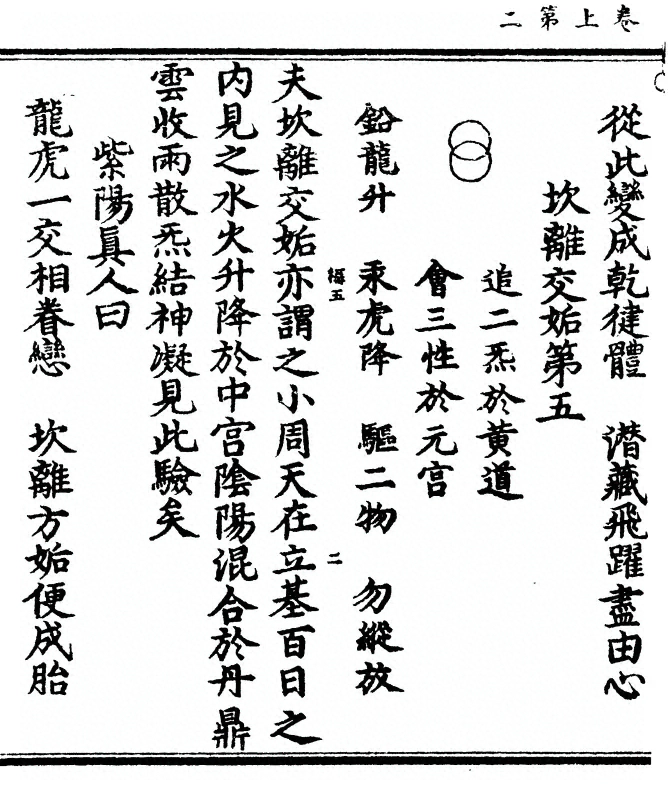 卷上第二
從此變成乾健體　潛藏飛躍盡由心
坎離交姤第五
追二炁於黃道
會三性於元宮
鉛龍升　汞虎降　驅二物　勿縱放
福五　二
夫坎離交姤亦謂之小周天在立基百日之
內見之水火升降於中宮陰陽混合於丹鼎
雲收雨散炁結神凝見此驗矣
紫陽眞人曰
龍虎一交相眷戀　坎離方姤便成胎